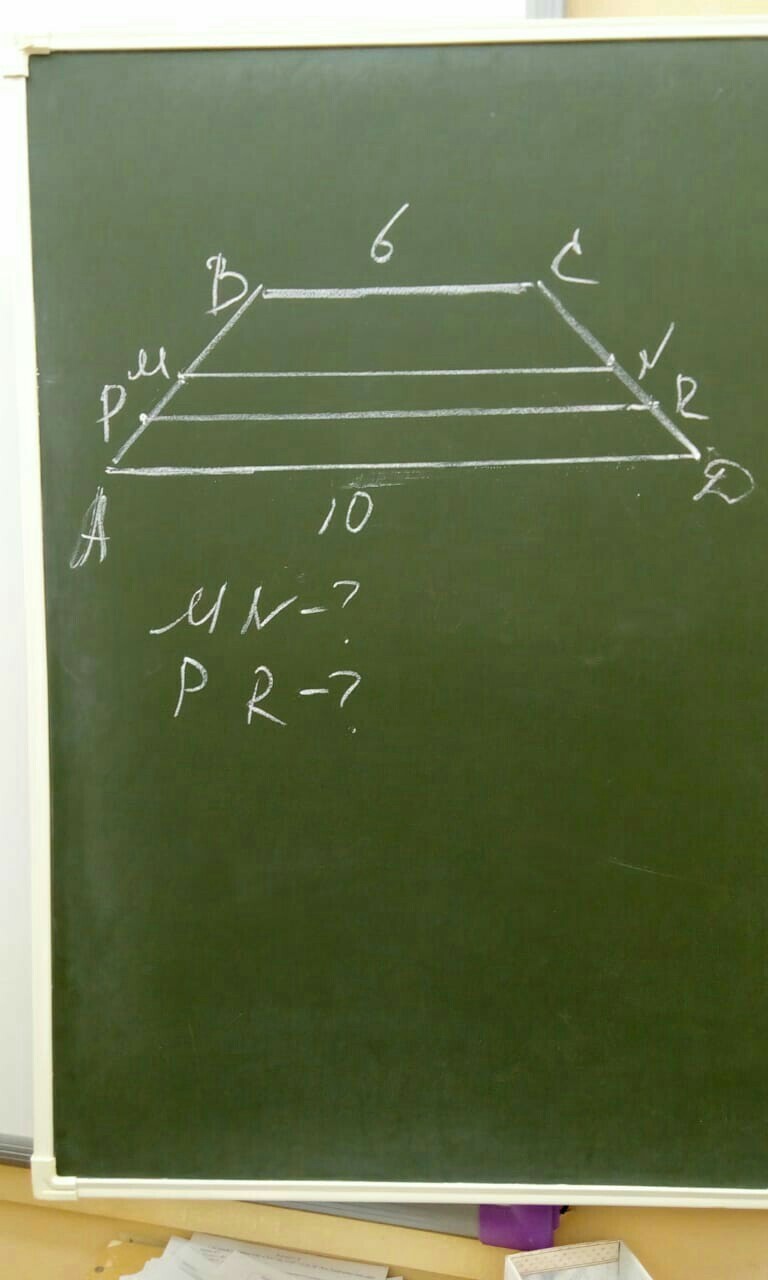 6
B C
M N
P R
A D
10
MN-?
PR-?